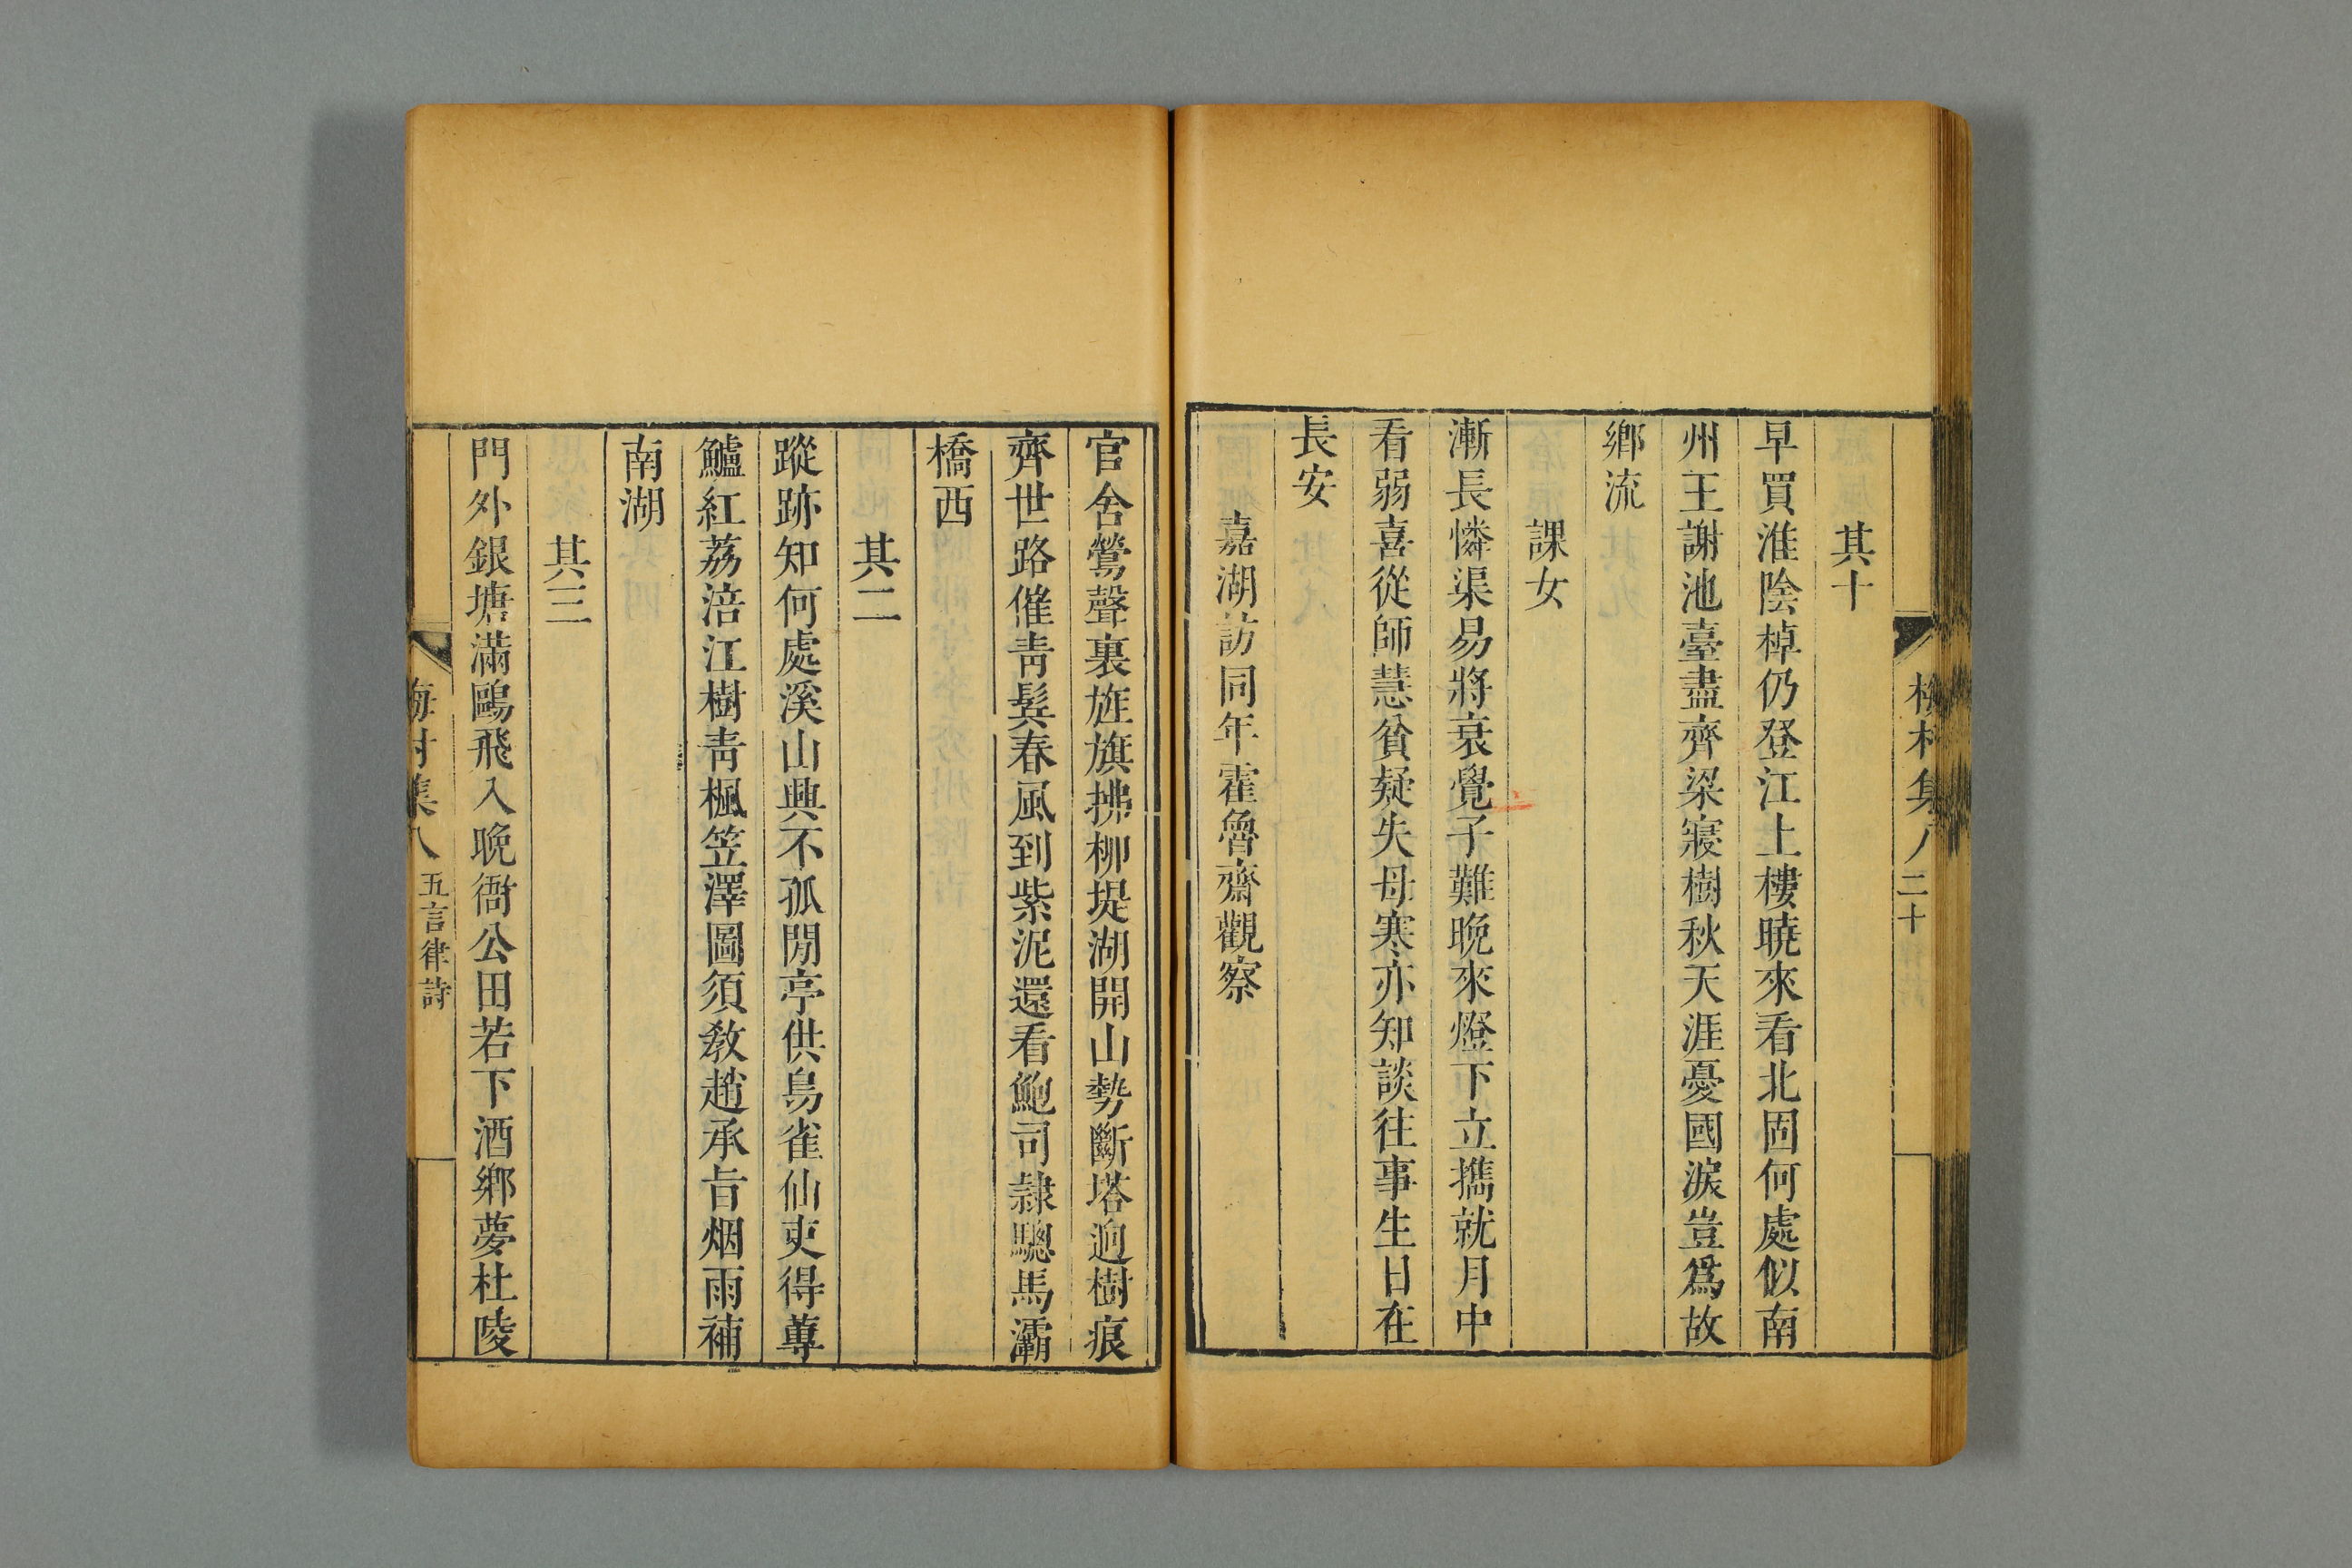 其十
早買淮陰棹仍登江上樓曉來看北固何處似南
州王謝池臺盡齊梁寢樹秋天涯憂國淚豈爲故
鄉流
課女
漸長憐渠易將衰覺子難晚來燈下立攜就月中
看弱喜從師慧貧疑失母寒亦知談往事生日在
長安
嘉湖訪同年霍魯齋觀察
梅村集八 二十
官舍鶯聲裏旌旗拂柳堤湖開山勢斷塔逈樹痕
齊世路催靑鬂春風到紫泥還看鮑司隷驄馬灞
橋西
其二
蹤跡知何處溪山興不孤閒亭供鳥雀仙吏得蓴
鱸紅荔涪江樹靑楓笠澤圖須敎趙承旨烟雨補
南湖
其三
門外銀塘滿鷗飛入晚衙公田若下酒鄉夢杜陵
梅村集八 五言律詩